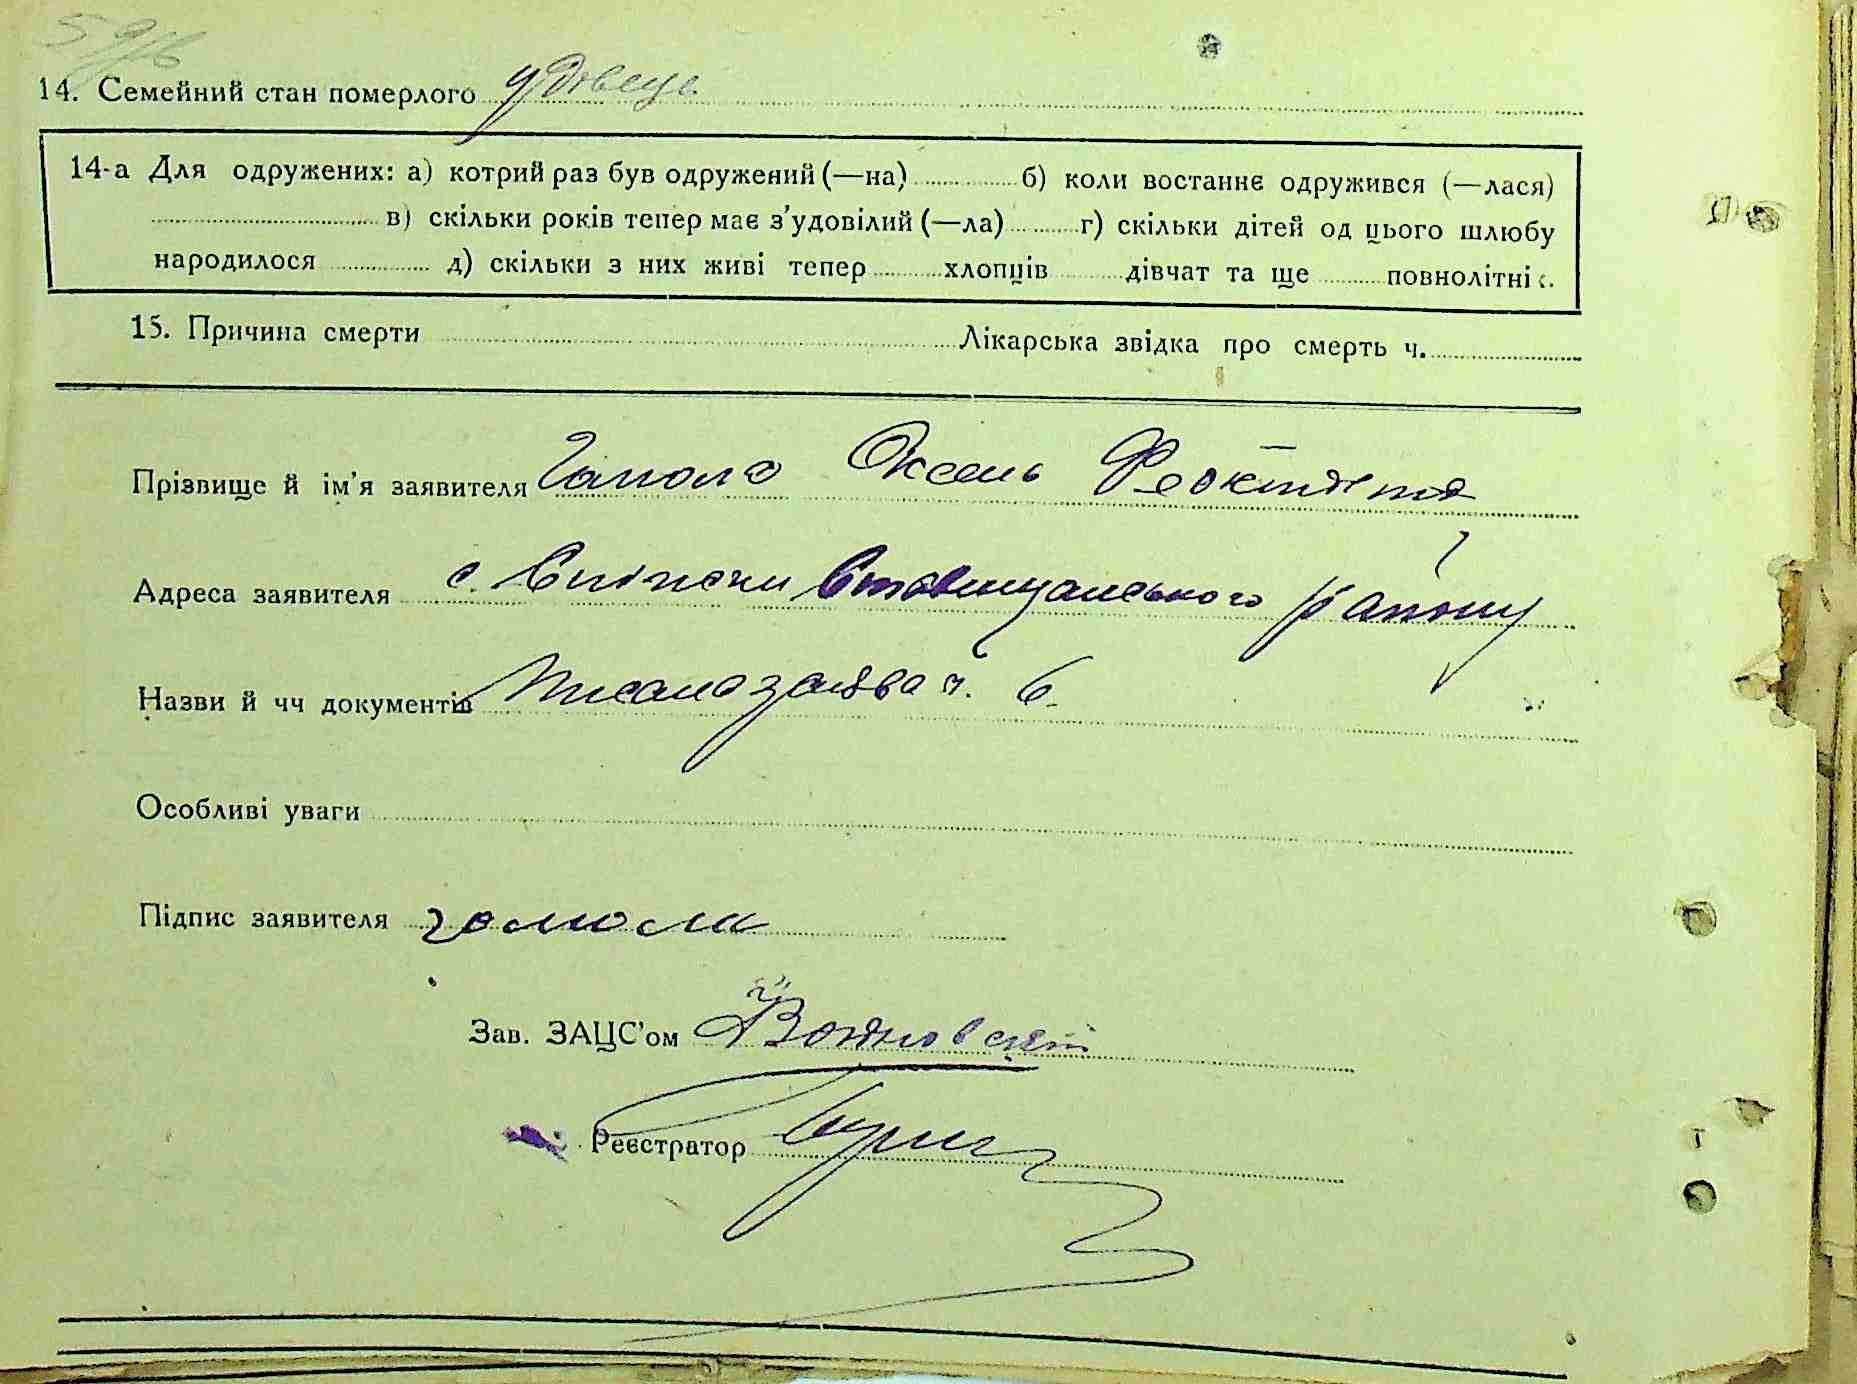 14. Семейний стан померлого удівець
14-а Для одружених: а) котрий раз був одружений (—на) б) коли востаннє одружився (—лася)
в) скільки років тепер має з’удовілий (—ла) г) скільки дітей од цього шлюбу
народилося д) скільки з них живі тепер хлопців дівчат та ще повнолітніх.
15. Причина смерти Лікарська звідка про смерть ч.
Прізвище й ім’я заявителя Оксень
Адреса заявителя с. Ставищанського району
Назви й чч документів Писана заява ч. 6
Особливі уваги
Підпис заявителя
Зав. ЗАЦС’ом Войновский
Реєстратор